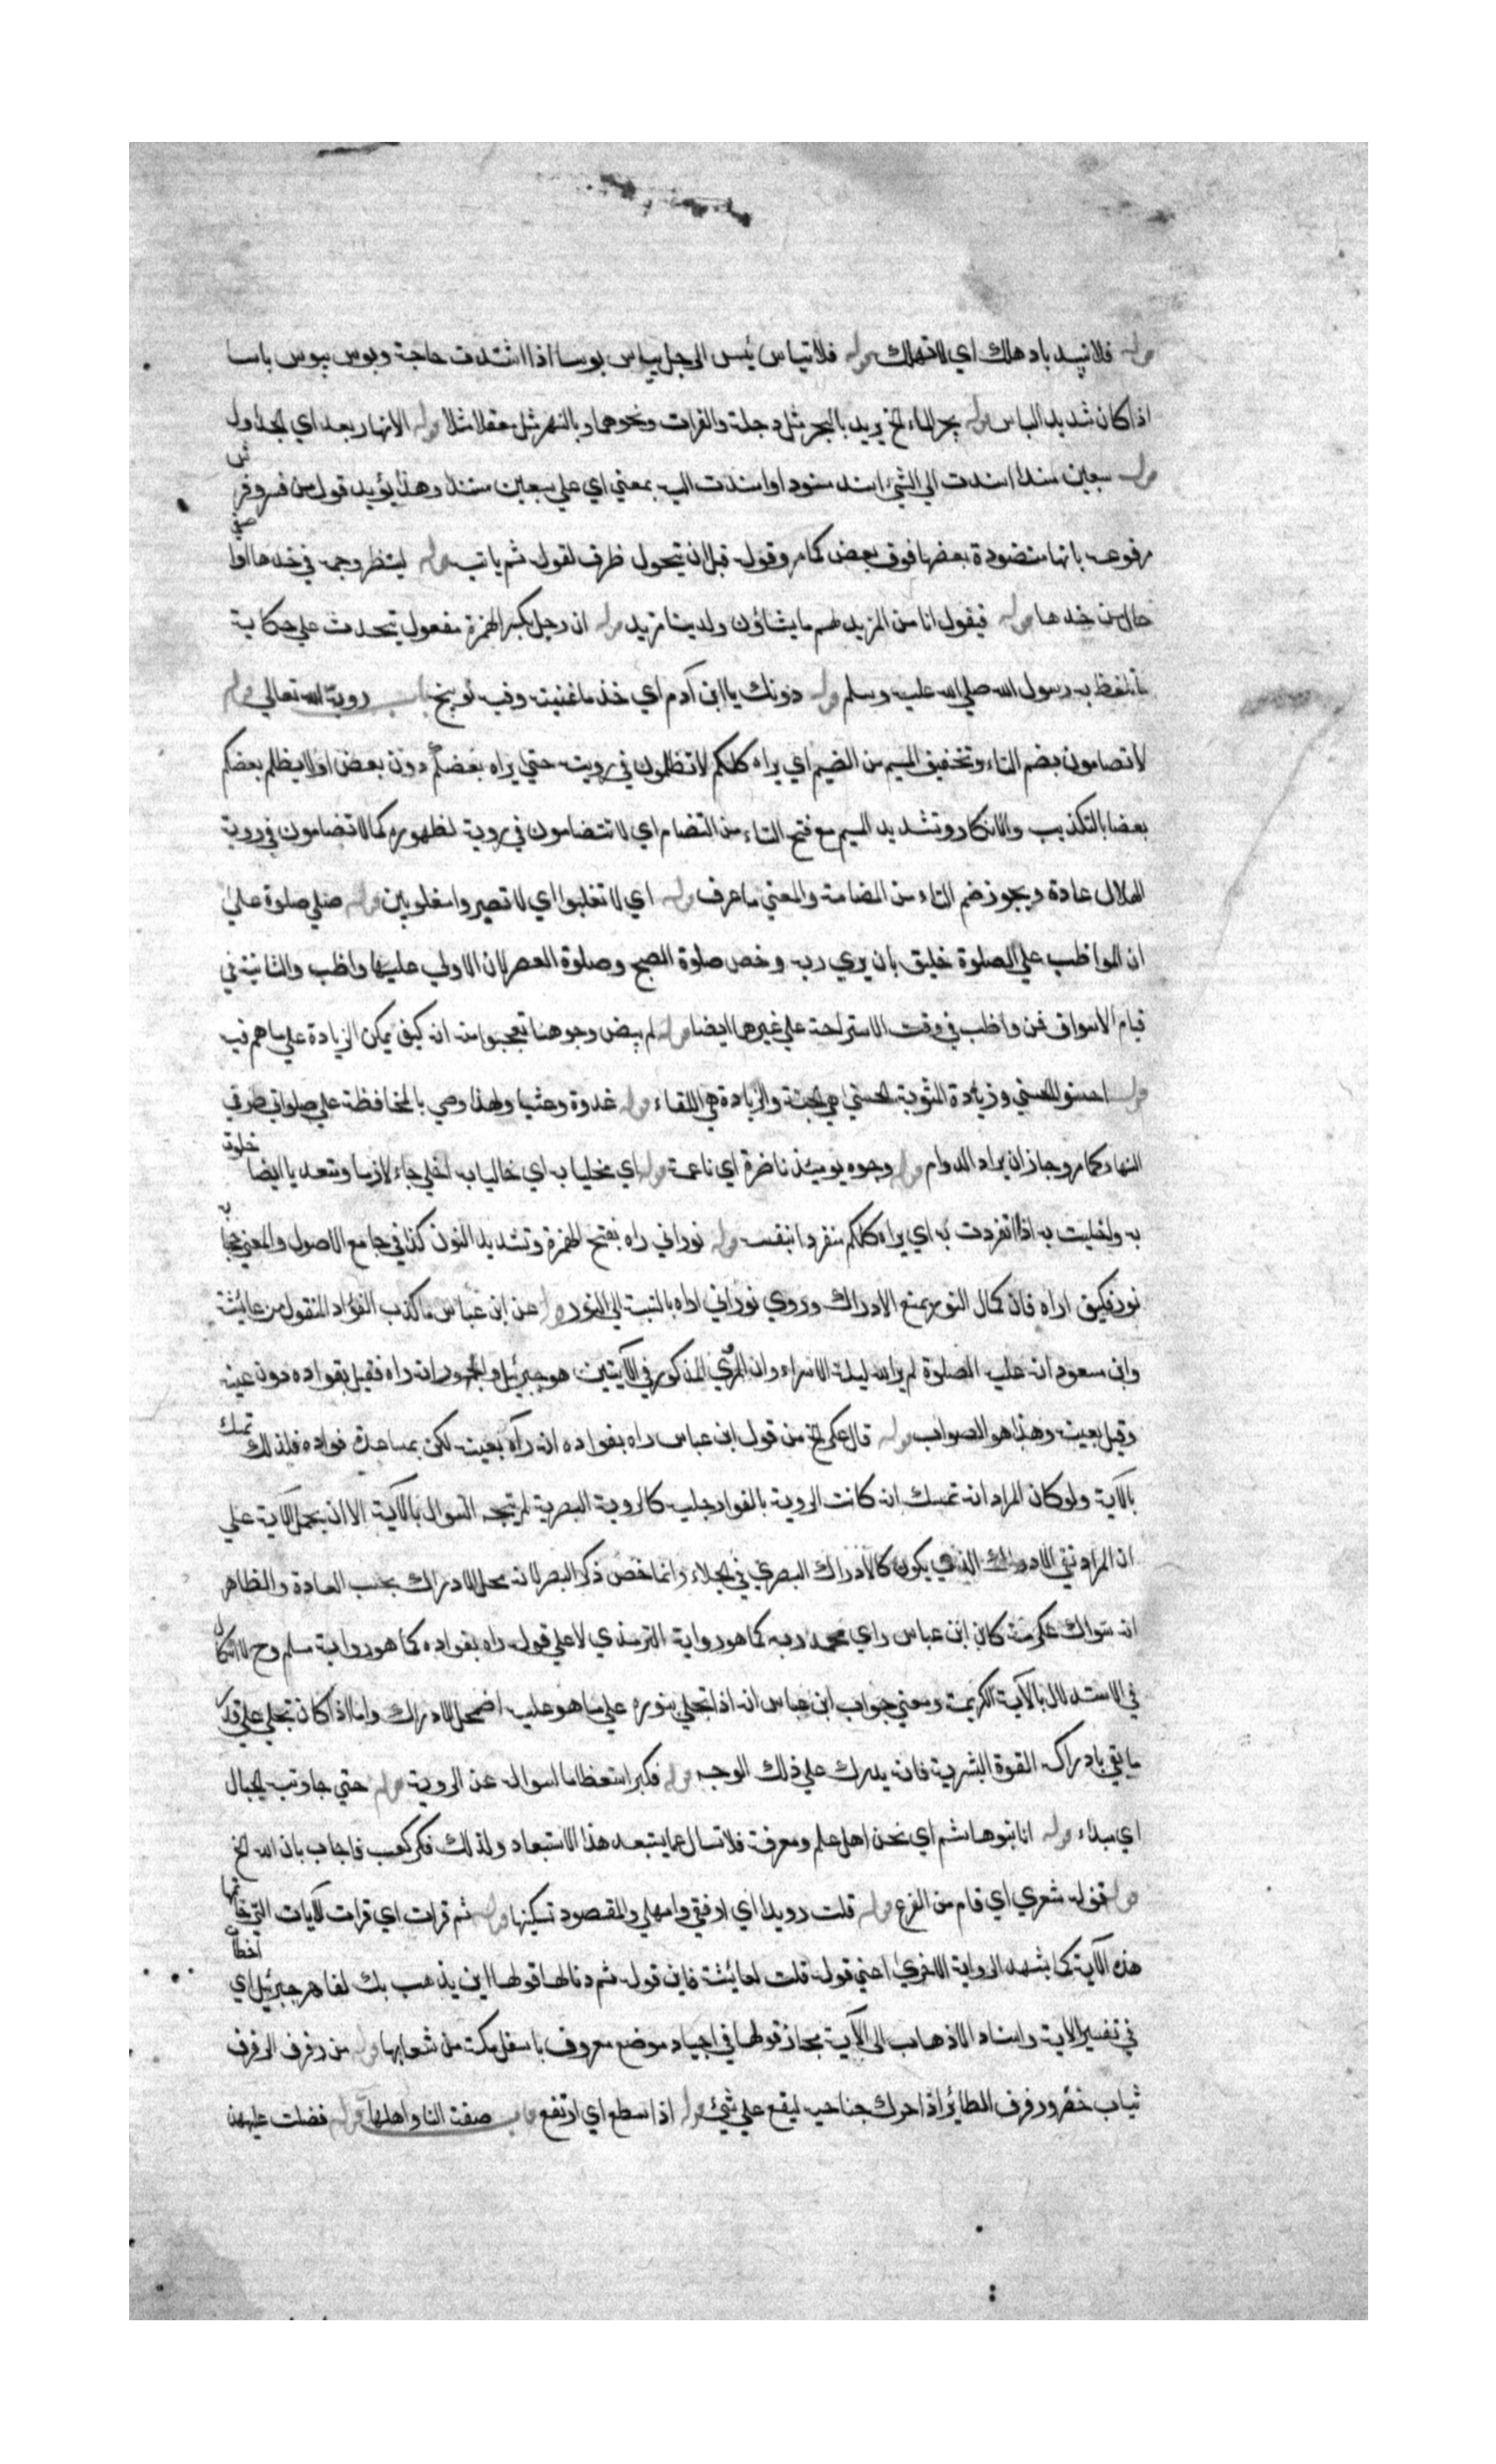 قوله فلا تبيد باد هلك اي لا تهلك قوله فلا تياس يئس الرجل يباس بوسا اذا اشتدت حاجة وبوس يبوس باسا
اذا كان شديد الباس قوله بحر الماء الخ يريد بالبحر مثل دجلة والفرات ونحوهما وبالنهر مثل نهر معقل مثلا قوله الانهار بعد اي الجداول
قوله سبعين مسندا اسندت الي الشيء اسند سنودا واسندت اليه بمعني اي علي سبعين مسندا وهذا يؤيد قول من فسر وفرش
مرفوعه بانها منضودة بعضها فوق بعض كما مر وقوله قبل ان يتحول ظرف لقوله ثم ياتيه قوله لينظر وجهه في خدها اصفي
حال من خدها قوله فيقول انا من المزيد لهم ما يشاؤن ولدينا مزيد قوله ان رجل بكسر الهمزة مفعول يتحدث علي حكاية
ما تلفظ به رسول الله صلي الله عليه وسلم قوله دونك يا ابن آدم اي خذ ما غنيت وفيه توبيخ باب روية الله تعالي قوله
لا تضامون بضم التاء وتخفيف الميم من الضيم اي يراه كلكم لا تظلمون في رويته حتي يراه بعضكم دون بعض او لا يظلم بعضكم
بعضا بالتكذيب والانكار وتشديد الميم مع فتح التاء من التضام اي لا تتضامون في روية لظهوره كما لا تضامون في روية
الهلال عادة ويجوز ضم التاء من المضامة والمعني ما عرف قوله اي لا تغلبوا اي لا تصيروا مغلوبين قوله صلي صلوة علي
ان المواظب علي الصلوة خليق بان يري ربه وخص صلوة الصبح وصلوة العصر لان الاولي عليها واظب والثانية في
قيام الاسواق فمن واظب في وقت الاستراحة علي غيرها ايضا قوله لم يبيض وجوهنا تعجبوا منه انه كيف يمكن الزيادة علي ما هم فيه
قوله احسنوا الحسني وزيادة المثوبة الحسني هي الجنة والزيادة هي اللقاء قوله غدوة وعشيا ولهذا وصي بالمحافظة علي صلواتي طرفي
النهار كما مر وجاز ان يراد الدوام قوله وجوه يومئذ ناضرة اي ناعمة قوله اي مخليا به اي خاليا به اخلي جاء لازما ومتعديا ايضا خلوت
به واخليت به اذا انفردت به اي يراه كلكم منفردا بنفسه قوله نور اني راه بفتح الهمزة وتشديد النون كذا في جامع الاصول والمعني حجابه
نور فكيف اراه فان كمال النور يمنع الادراك وروي نوراني اراه بالنسبة الي النور قوله عن ابن عباس ما كذب الفؤاد المنقول من عايشة
وابن مسعود انه عليه الصلوة لم ير الله ليلة الاسراء وان المرئي المذكور في الآيتين هو جبرئيل والجمهور انه راه فقيل بفواده دون عينه
وقيل بعينه وهذا هو الصواب قوله قال عكرمة الخ من قول ابن عباس راه بفواده انه رآه بعينه لكن بمساعدة فواده فلذلك تمسك
بالآية ولو كان المراد انه تمسك انه كانت الروية بالفواد جلية كالروية البصرية لم يتجه السوال بالآية الا ان يحمل الآية علي
ان المراد نفي الادراك الذي يكون كالادراك البصري في الجلاء وانما خص ذكر البصر لانه محل الادراك بحسب العادة والظاهر
انه سوال عكرمة كان ابن عباس راي محمد ربه كما هو رواية الترمذي لا علي قوله راه بفواده كما هو رواية مسلم وح لا اشكال
في الاستدلال بالآية الكريمة ومعني جواب ابن عباس انه اذا تجلي بنوره علي ما هو عليه اضمحل الادراك واما اذا كان تجلي علي قدر
ما يفي بادراكه القوة البشرية فانه يدرك علي ذلك الوجه قوله فكبر استعظاما لسواله عن الروية قوله حتي جاوبته الجبال
اي صداء قوله انا بنو هاشم اي نحن اهل علم ومعرفة فلا تسال عما يستبعد هذا الاستبعاد ولذلك فكر كعب فاجاب بان الله الخ
قوله قف له شعري اي قام من الفزع قوله قلت رويدا اي ارفقي وامهلي والمقصود تسكينها قوله ثم قرات اي قرات الآيات التي خاتمتها
هذه الآية كما يشهد الرواية الاخري اعني قوله قلت لعائشة فاين قوله ثم دنا لها قولها اين يذهب بك لفاهر جبرئيل اي اخطات
في تفسير الاية واسناد الاذهاب الي الآية مجاز قولها في اجياد موضع معروف باسفل مكة من شعابها قوله من رفرف الرفرف
ثياب خضر ورفرف الطائر اذا حرك جناحيه ليقع علي شيئ قوله اذا سطع اي ارتفع باب صفة النار واهلها قوله فضلت عليهن